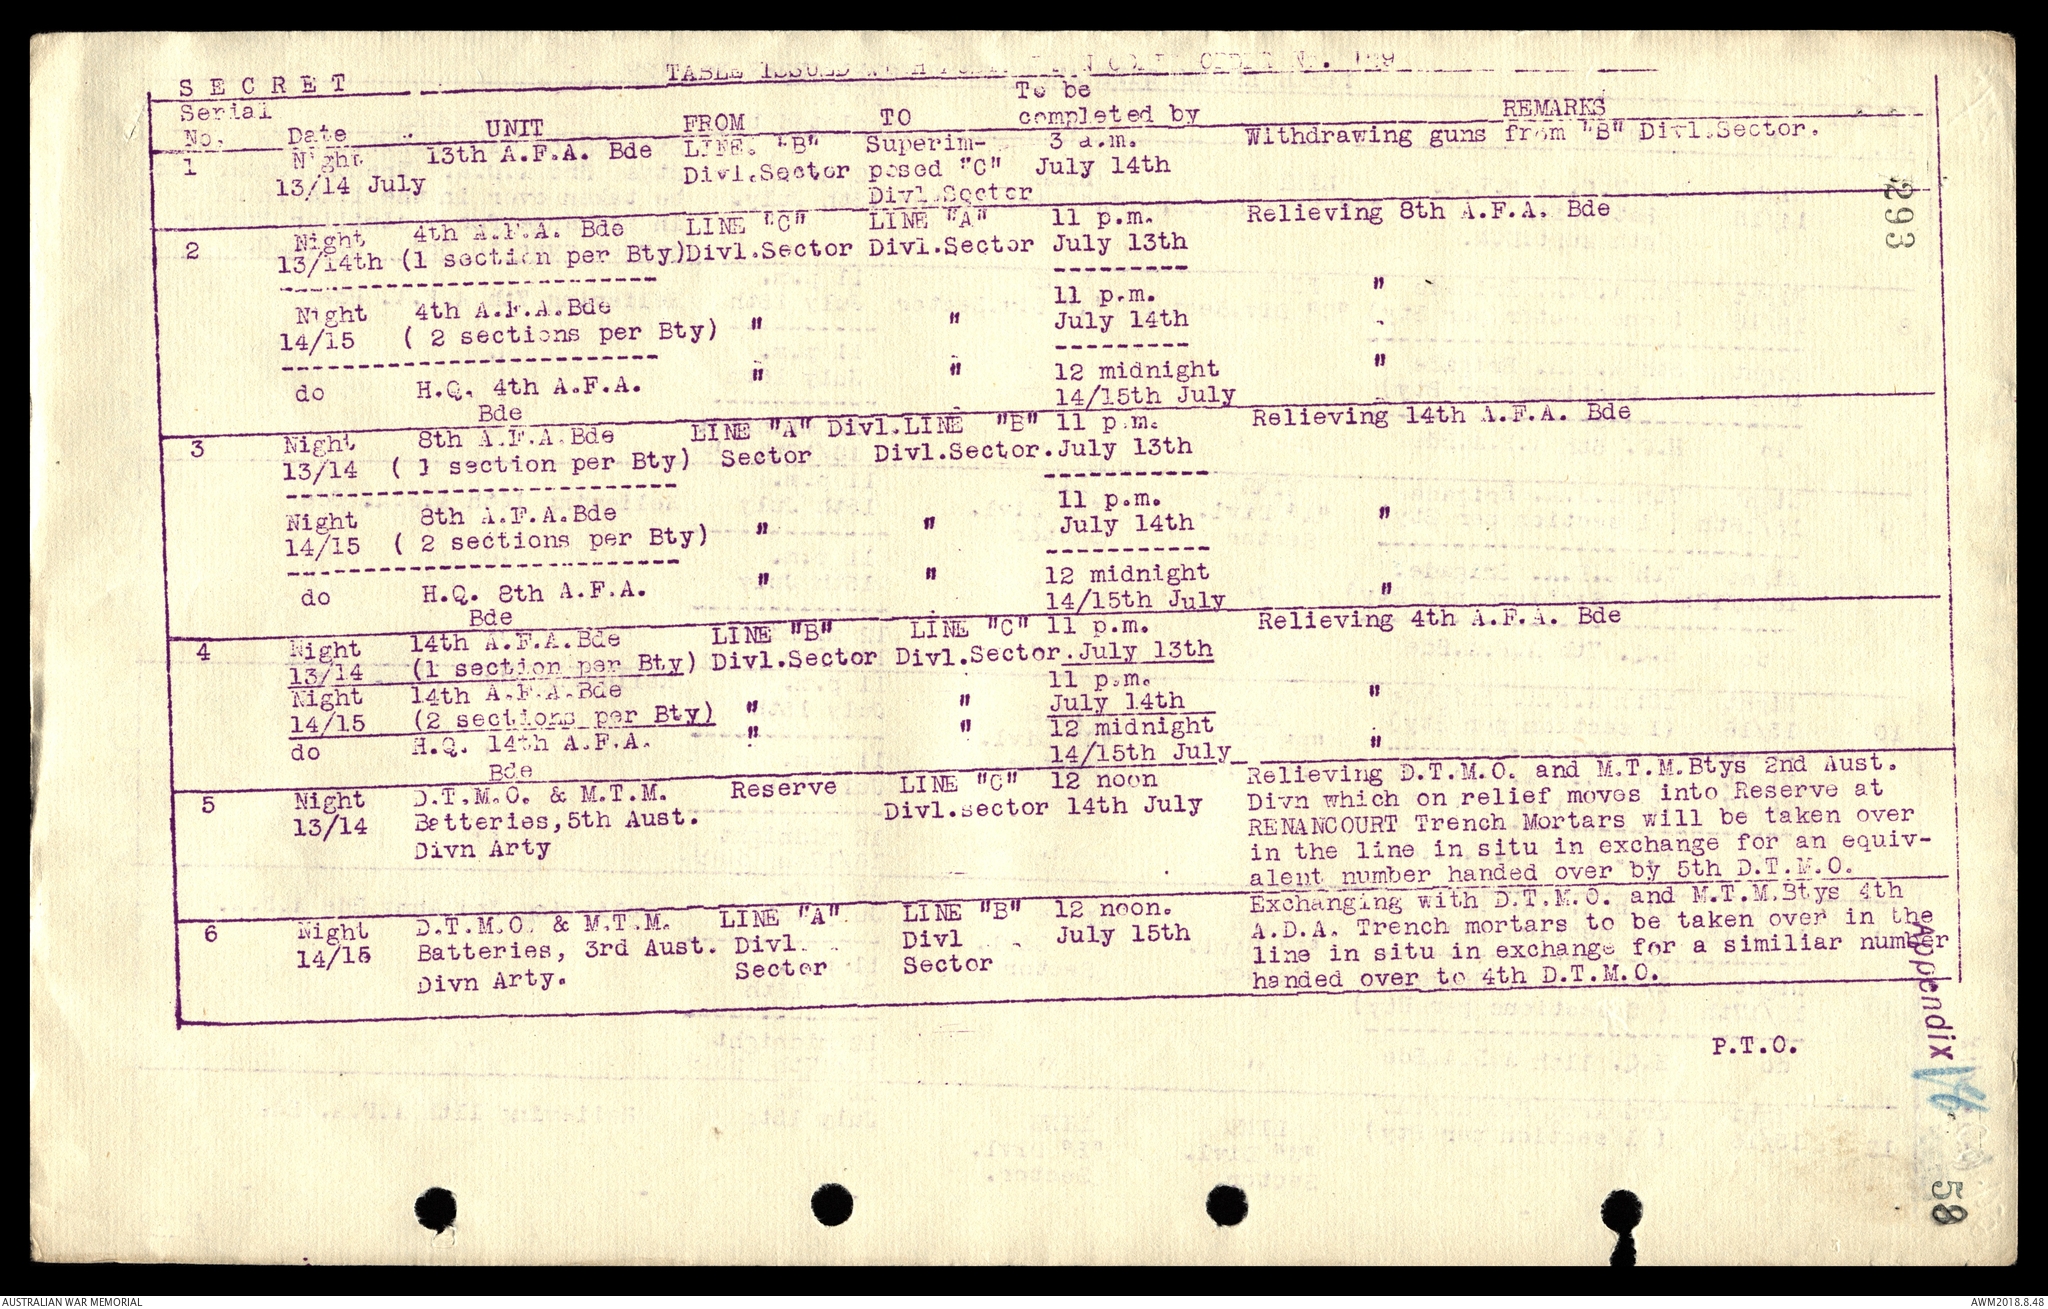 SECRET
TABLE ISSUED ORDER No.
Serial No. Date UNIT FROM TO To be completed by REMARKS
1 Night 13th A.F.A. Bde LINE. "B" Superim- 3 a.m. Withdrawing guns from "B" Divl.Sector.
13/14 July Divl.Sector posed "C" July 14th
Divl.Sector
2 Night 4th A.F.A. Bde LINE "C" LINE "A" 11 p.m. Relieving 8th A.F.A. Bde
13/14th (1 section per Bty) Divl.Sector Divl.Sector July 13th
Night 4th A.F.A.Bde 11 p.m. "
14/15 ( 2 sections per Bty) " " July 14th
do H.Q. 4th A.F.A. " " 12 midnight "
Bde 14/15th July
3 Night 8th A.F.A.Bde LINE "A" Divl.LINE "B" 11 p.m. Relieving 14th A.F.A. Bde
13/14 ( 1 section per Bty) Sector Divl.Sector. July 13th
Night 8th A.F.A.Bde 11 p.m.
14/15 ( 2 sections per Bty) " " July 14th "
do H.Q. 8th A.F.A. " " 12 midnight "
Bde 14/15th July
4 Night 14th A.F.A.Bde LINE "B" LINE "C" 11 p.m. Relieving 4th A.F.A. Bde
13/14 (1 section per Bty) Divl.Sector Divl.Sector. July 13th
Night 14th A.F.A.Bde 11 p.m.
14/15 (2 sections per Bty) " " July 14th "
do H.Q. 14th A.F.A. " " 12 midnight
Bde 14/15th July "
5 Night D.T.M.O. & M.T.M. Reserve LINE "C" 12 noon Relieving D.T.M.O. and M.T.M.Btys 2nd Aust.
13/14 Batteries,5th Aust. Divl.sector 14th July Divn which on relief moves into Reserve at
Divn Arty RENANCOURT Trench Mortars will be taken over
in the line in situ in exchange for an equiv-
alent number handed over by 5th D.T.M.O.
6 Night D.T.M.O. & M.T.M. LINE "A" LINE "B" 12 noon. Exchanging with D.T.M.O. and M.T.M.Btys 4th
14/15 Batteries, 3rd Aust. Divl. Divl July 15th A.D.A. Trench mortars to be taken over in the
Divn Arty. Sector Sector line in situ in exchange for a similiar number
handed over to 4th D.T.M.O.
P.T.O.
293
Appendix
58
AUSTRALIAN WAR MEMORIAL
AWM2018.8.48